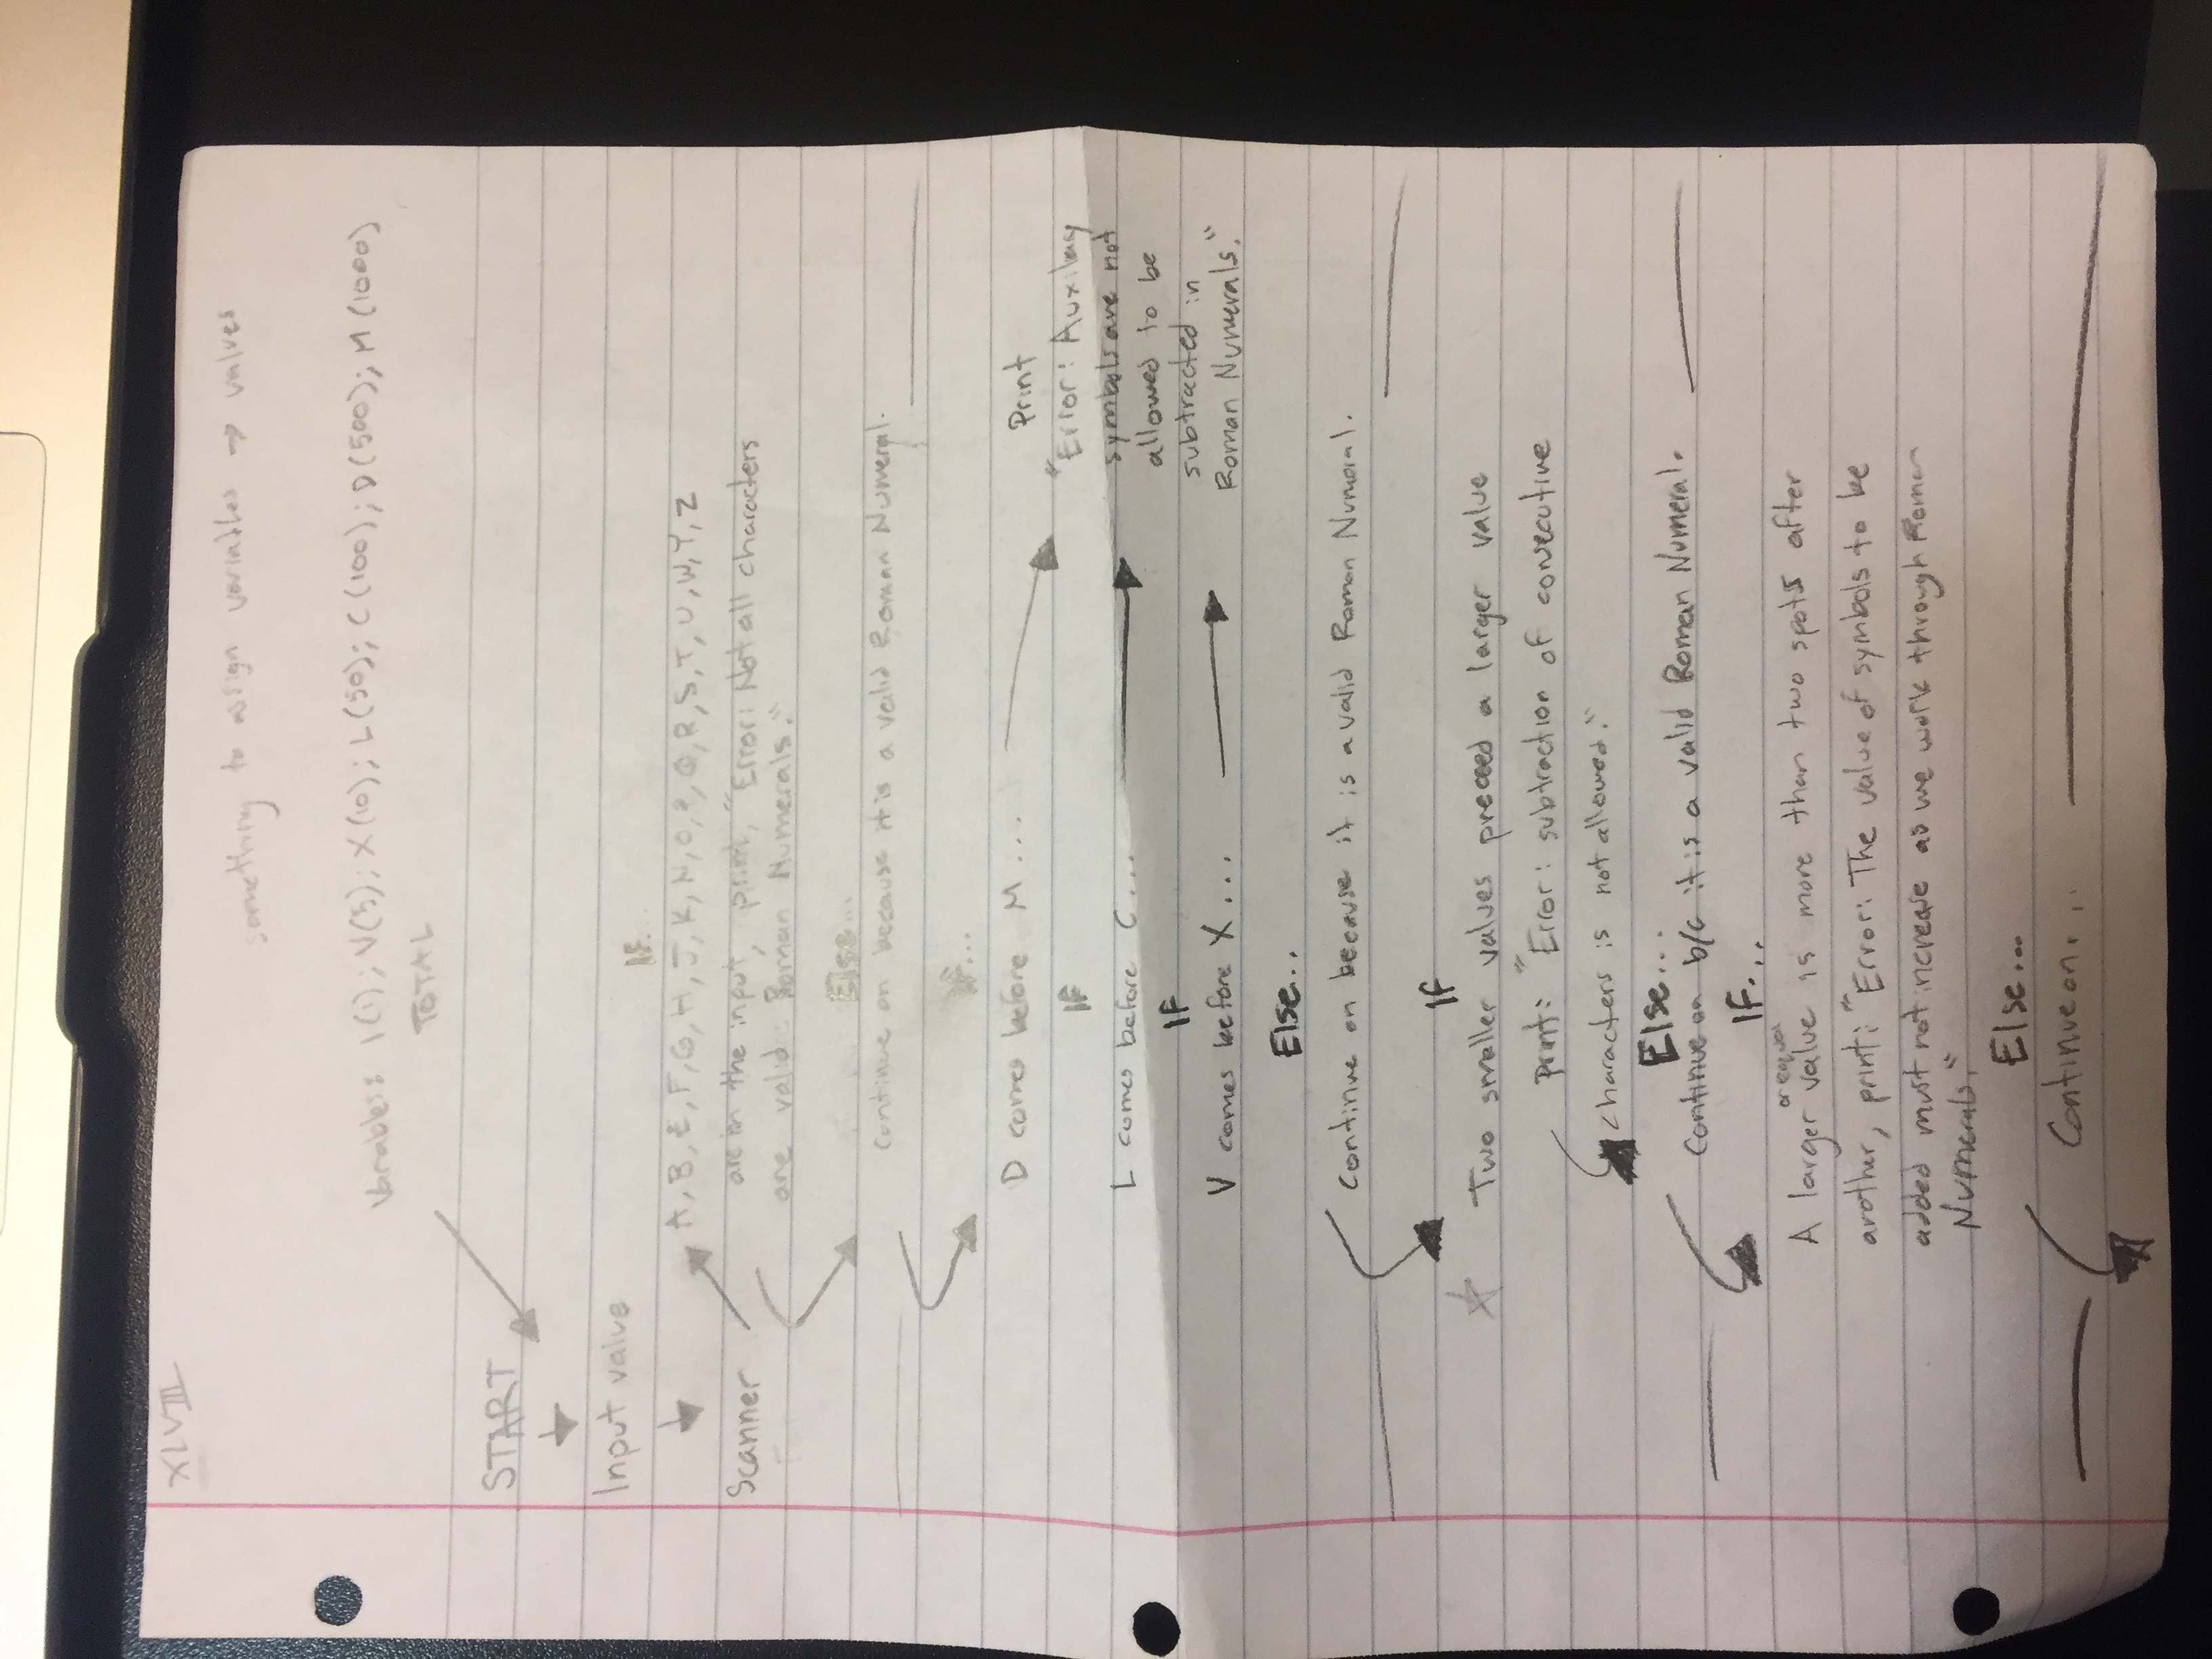 XLVIII
something to assign variables → values
Variables: I(1); V(5); X(10); L(50); C(100); D(500); M(1000)
TOTAL
START
Input value
IF...
A, B, E, F, G, H, J, K, N, O, P, Q, R, S, T, U, W, Y, Z
Scanner
are in the input, print, "Error: Not all characters
are valid Roman Numerals."
Else...
continue on because it is a valid Roman Numeral.
IF...
D comes before M...
Print
"Error: Auxilary
symbols are not
allowed to be
subtracted in
Roman Numerals."
IF
L comes before C...
IF
V comes before X...
Else..
Continue on because it is a valid Roman Numeral.
IF
Two smaller values preceed a larger value
print: "Error: subtraction of consecutive
characters is not allowed."
Else...
Continue on b/c it is a valid Roman Numeral.
IF...
or equal
A larger value is more than two spots after
another, print: "Error: The value of symbols to be
added must not increase as we work through Roman
Numerals."
Else...
Continue on...